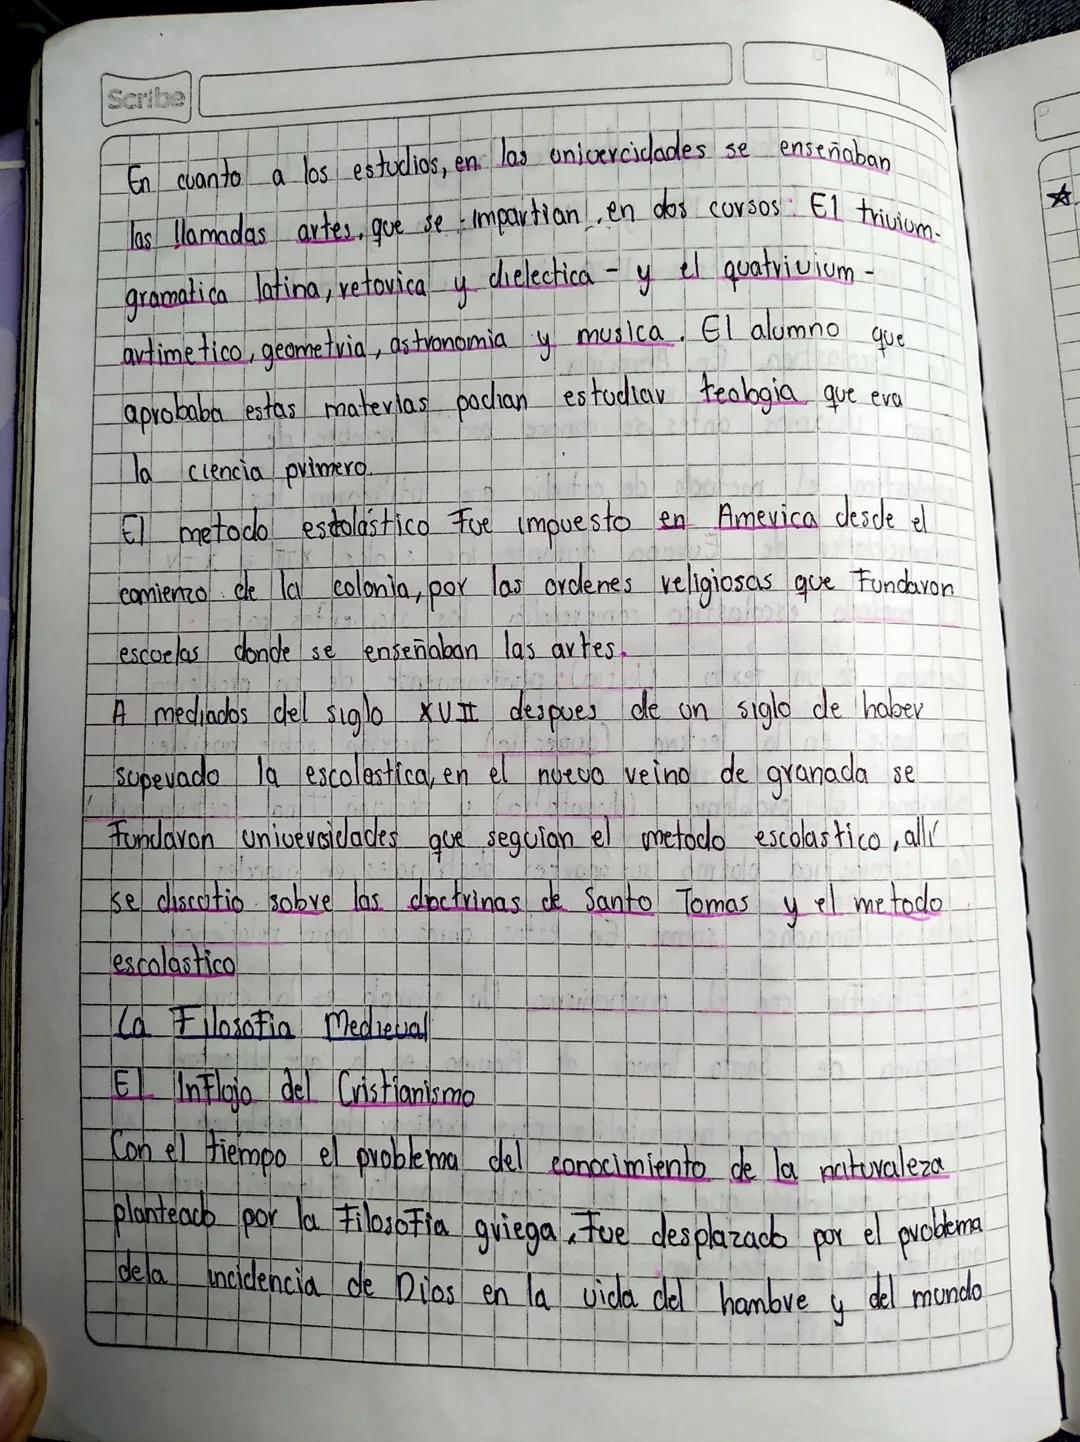 Scribe
En cuanto a los estudios, en las univercidades se enseñaban
las llamadas artes, que se impartian en dos cursos: El trivium-
gramatica latina, retorica y dielectica - y el quatrivium -
artimetico, geometria, astronomia y musica. El alumno que
aprobaba estas materias podian estudiar teologia que era
la ciencia primero.
El metodo escolástico fue impuesto en America desde el
comienzo de la colonia, por las ordenes religiosas que Fundaron
escuelas donde se enseñaban las artes.
A mediados del siglo XVII despues de un siglo de haber
superado la escolastica, en el nuevo reino de granada se
Fundaron universidades que seguian el metodo escolastico, allí
se discutio sobre las doctrinas de Santo Tomas y el metodo
escolastico
La Filosofia Medieval
El Influjo del Cristianismo
Con el tiempo el problema del conocimiento de la naturaleza
planteado por la Filosofia griega, fue desplazado por el problema
dela incidencia de Dios en la vida del hambre y del mundo